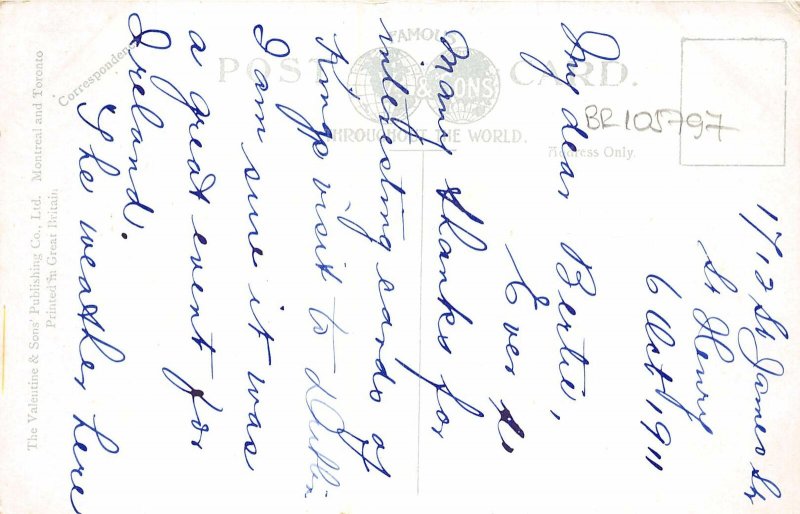 1712 St James St
St Henry
6 Oct, 1911
My dear Bertie,
Ever so
many thanks for
interesting cards of
King's visit to dublin
I am sure it was
a great event for
Ireland.
The weather here
FAMOUS
POST CARD.
& SONS
THROUGHOUT THE WORLD.
Correspondence
Address Only.
BR105797
The Valentine & Sons' Publishing Co., Ltd. Montreal and Toronto
Printed in Great Britain